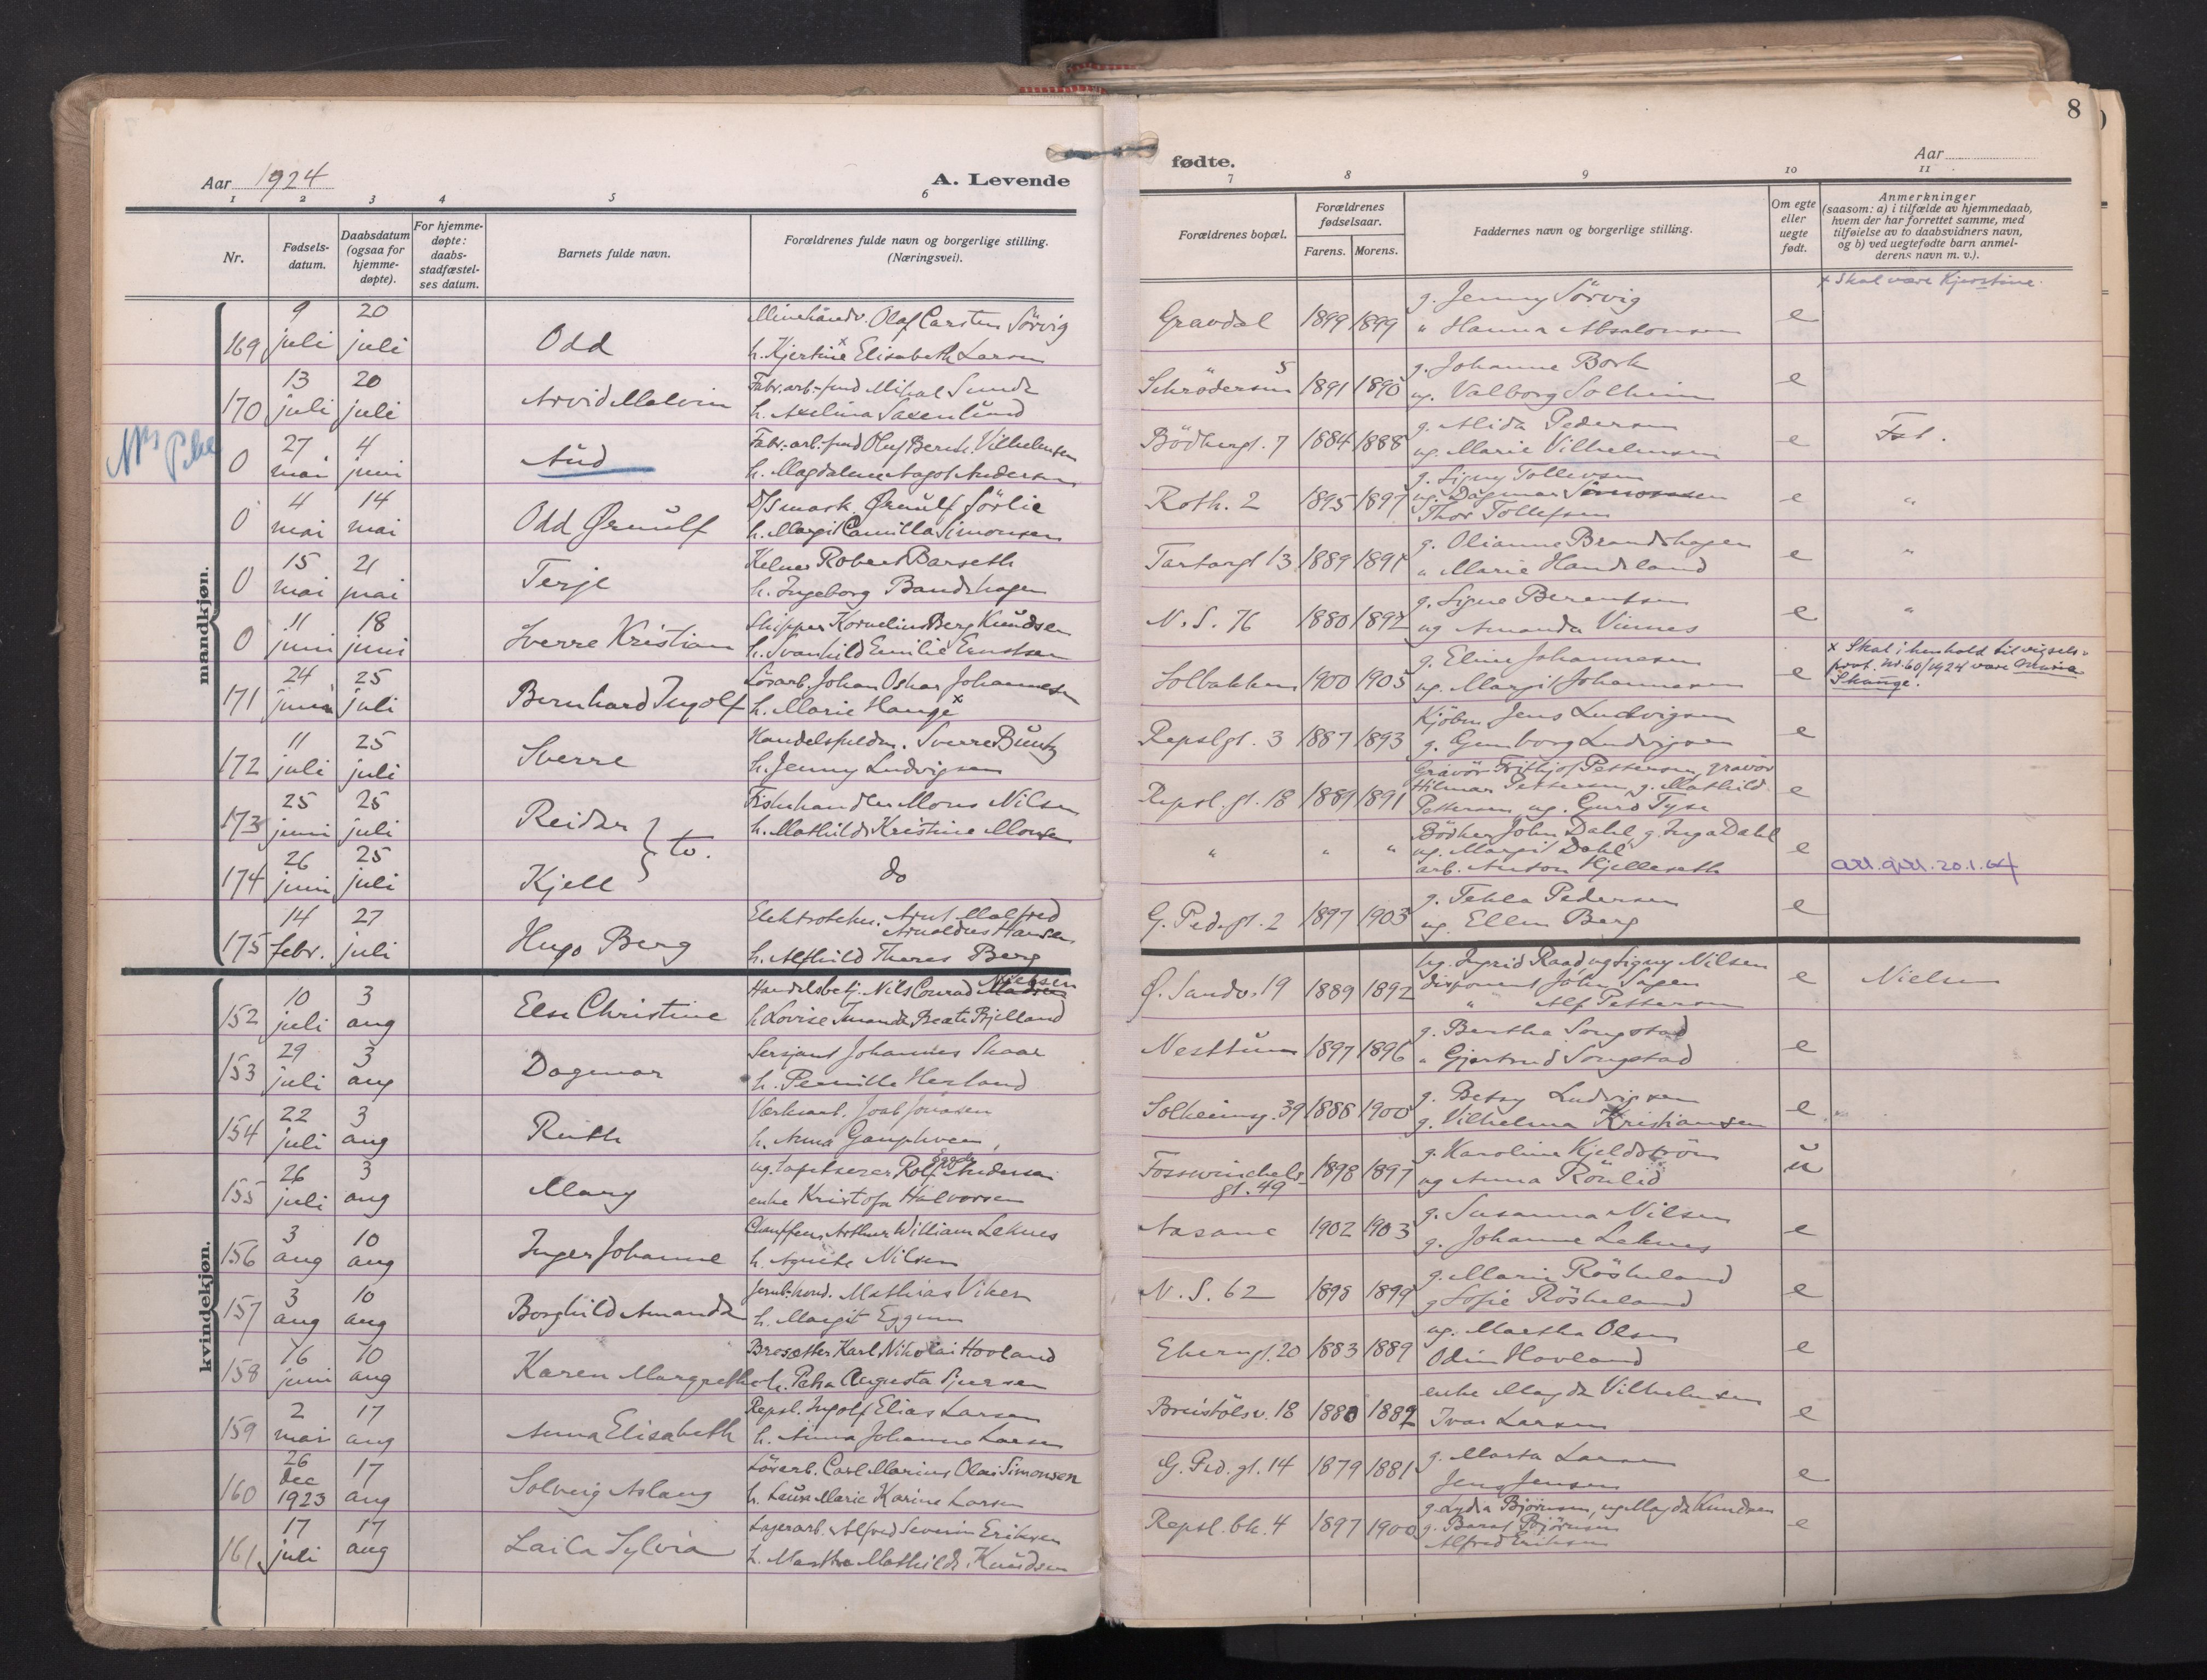 8
Aar 1924
A. Levende
fødte.
Aar
1 2 3 4 5 6 7 8 9 10 11
Nr.
Fødsels-
datum.
Daabsdatum
(ogsaa for
hjemme-
døpte).
For hjemme-
døpte:
daabs-
stadfæstel-
ses datum.
Barnets fulde navn.
Forældrenes fulde navn og borgerlige stilling.
(Næringsvei).
Forældrenes bopæl.
Forældrenes
fødselsaar.
Farens. Morens.
Faddernes navn og borgerlige stilling.
Om egte
eller
uegte
født.
Anmerkninger
(saasom: a) i tilfælde av hjemmedaab,
hvem der har forrettet samme, med
tilføielse av to daabsvidners navn,
og b) ved uegtefødte barn anmel-
derens navn m. v.).
mandkjøn.
169 9 juli 20 juli Odd
Olaf Carsten Sörvig
h. Kjertine x Elisabeth Larsen
Gravdal 1899 1899
g. Jenny Sörvig
" Hanna Absalonsen
e
x Skal være Kjerstine
170 13 juli 20 juli Arvid Malvin
Fabr. arb. Mikal Sunde
h. Axelina Saxenlund
5
1891 1890
g. Johanne Bork
ug. Valborg Solheim
e
0 27 mai 4 juni Aud
Fabr. arb. Oluf Bernh. Vilhelmsen
h. Magdalene Aagot Andersen
Bödkergt. 7 1884 1888
g. Alida Pedersen
ug. Marie Vilhelmsen
e
0 4 mai 14 mai Odd Ørnulf
D/S mask. Ørnulf Sörlie
h. Margit Camilla Simonsen
Roth. 2 1895 1897
g. Signy Tollevsen
ug. Dagmar Simonsen
Thor Tollefsen
e "
0 15 mai 21 mai Terje
Kelner Robert Barseth
h. Ingeborg Brandshagen
Tartargt 13 1889 1891
g. Olianne Brandshagen
" Marie Handeland
e "
0 11 juni 18 juni Sverre Kristian
Skipper Kornelius Berg Knudsen
h. Svanhild Emilie Ernstsen
N. S. 76 1880 1892
g. Signe Berentsen
ug Amanda Vinnes
e "
171 24 juni 25 juli Bernhard Ingolf
Lösarb. Johan Oskar Johannesen
h. Marie Hauge x
Solbakken 1900 1905
g. Eline Johannesen
ug. Margit Johannesen
e
x Skal i henhold til vigsels-
prot. nr. 60/1924 være Maria
Skauge.
172 11 juli 25 juli Sverre
Handelsfuldm. Sverre Büntz
h. Jenny Ludvigsen
Repslgt. 3 1887 1893
Kjöbm Jens Ludvigsen
g. Gunborg Ludvigsen
e
173 25 juni 25 juli Reidar
Fiskehandler Mons Nilsen
h. Mathilde Kristine Monsen
Repsl. gt. 18 1889 1891
Gravör Frithjof Pettersen, gravör
Hilmar Pettersen, g. Mathild
Pettersen ug. Gurd Tyse
e
174 26 juni 25 juli Kjell
} to.
do
" " "
Bödker John Dahl, g. Inga Dahl
ug. Margit Dahl
arb. Anton Kjelleseth
e
att. gitt. 20.1.64
175 14 febr. 27 juli Hugo Berg
Arnt Malfred
Arnoldus Hansen
h. Alfhild Theres Berg
G. Ped. gt. 2 1897 1903
g. Tekla Pedersen
ug. Ellen Berg
e
kvindekjøn.
152 10 juli 3 aug Else Christine
Handelsbetj. Nils Conrad Nielsen
h Lovise Amanda Beate Bjelland
Ø. Sandv. 19 1889 1892
ug. Ingrid Raad ug Signy Nilsen
disponent John Sagen
" Alf Pettersen
e Nielsen
153 29 juli 3 aug Dagmar
Sersjant Johannes Skaar
h. Pernille Herland
Nesttun 1897 1896
g. Bertha Songstad
" Gjertrud Songstad
e
154 22 juli 3 aug Ruth
h. Anna
Solheimsg. 39 1888 1900
g. Betsy Ludvigsen
g. Vilhelmine Kristiansen
e
155 26 juli 3 aug Mary
ug. tapetserer Rolf Andersen
enke Kristofa Halvorsen
Fosswinckels
gt. 49 1898 1897
g. Karoline Kjeldström
ug Anna Rönlid
u
156 3 aug 10 aug Inger Johanne
Chauffeur Arthur William Leknes
h. Agnethe Nilsen
1902 1903
g. Susanna Nilsen
g. Johanne Leknes
e
157 3 aug 10 aug Borghild Amanda
Mathias Viken
h. Margit Eggum
N. S. 62 1898 1899
g. Marie Rösheland
g Sofie Rösheland
e
158 16 juni 10 aug Karen Margrethe
Brosætter Karl Nikolai Hovland
h. Petra Augusta Sjursen
Ekerngt. 20 1883 1889
ug. Martha Olsen
Odin Hovland
e
159 2 mai 17 aug Anna Elisabeth
Repsl. Ingolf Elias Larsen
h. Anna Johanne Larsen
Breistölsv. 18 1880 1882
enke Magda Vilhelmsen
Ivar Larsen
e
160 26 dec 1923 17 aug Solveig Aslaug
Lösarb. Carl Marius Olai Simonsen
h. Laura Marie Karine Larsen
G. Ped. gt. 14 1879 1881
g. Marta Larsen
Jens Jensen
e
161 17 juli 17 aug Laila Sylvia
Lagerarb. Alfred Severin Eriksen
h. Martha Mathilde Knudsen
Repsl. bk. 4 1897 1900
g. Lydia Björnsen, ug Magda Knudsen
g. Bernt Björnsen
Alfred Eriksen
e